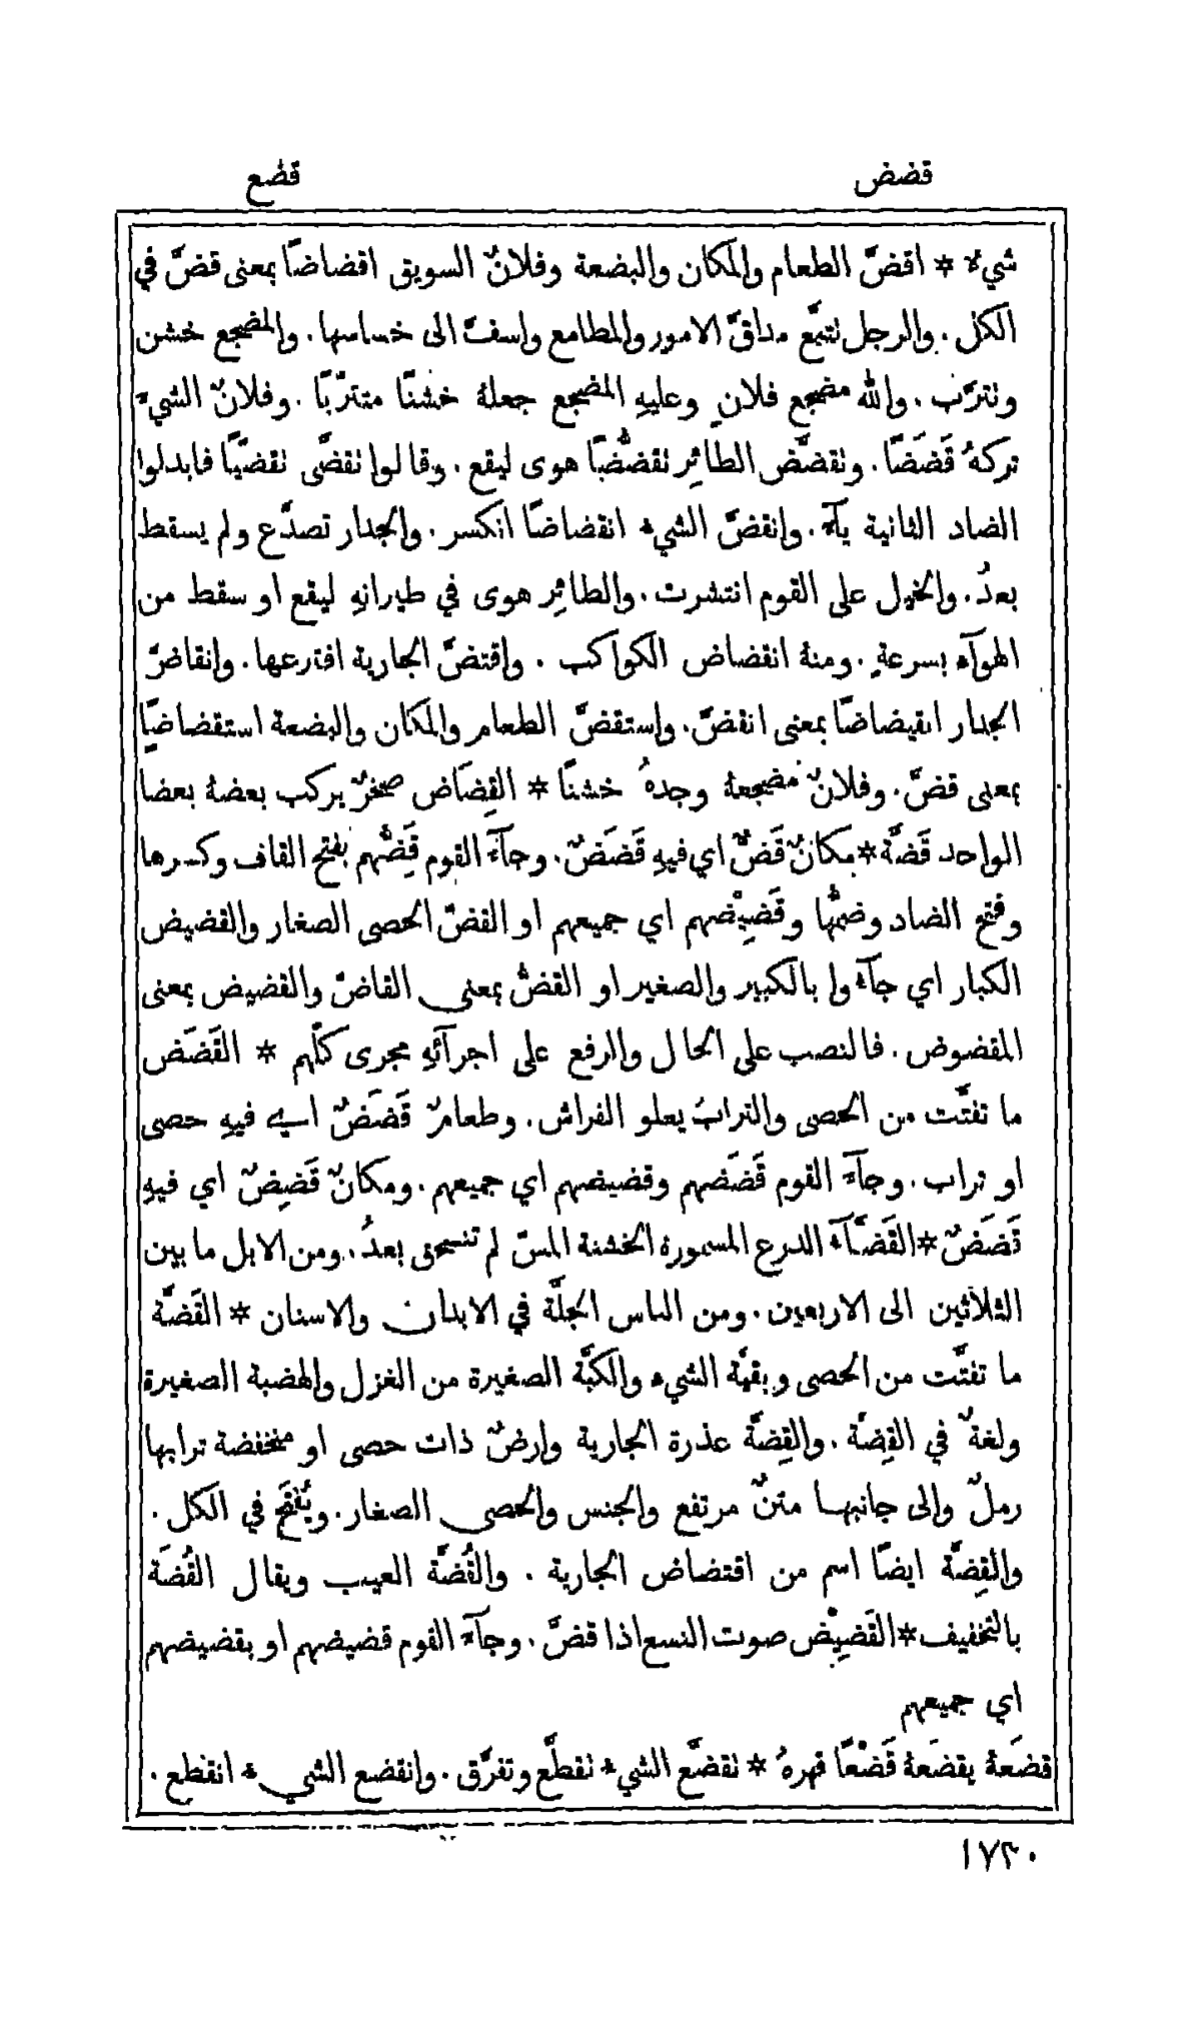 قضض
قضع
شيءٌ * اقضَّ الطعام والمكان والبضعة وفلانٌ السويق اقضاضًا بمعنى قضَّ في
الكل. والرجل تتبَّع مداقَّ الامور والمطامع واسفَّ الى خساسها. والمضجع خشن
وتترَّب. والله مضجع فلانٍ وعليهِ المضجع جعلهُ خشنًا متترّبًا. وفلانٌ الشيءَ
تركهُ قَضَضًا. وتقضَّض الطائِر تقضُّضًا هوى ليقع. وقالوا تقضَّى تقضّيًا فابدلوا
الضاد الثانية يآءً. وانقضَّ الشيءُ انقضاضًا انكسر. والجدار تصدَّع ولم يسقط
بعدُ. والخيل على القوم انتشرت. والطائِر هوى في طيرانهِ ليقع او سقط من
الهوآءِ بسرعةٍ. ومنهُ انقضاض الكواكب. واقتضَّ الجارية افترعها. وانقاضَّ
الجدار انقيضاضًا بمعنى انقضَّ. واستقضَّ الطعام والمكان والبضعة استقضاضًا
بمعنى قضَّ. وفلانٌ مضجعهُ وجدهُ خشنًا * القِضَاض صخرٌ يركب بعضهُ بعضا
الواحد قَضَّة * مكانٌ قَضٌّ اي فيهِ قَضَضٌ. وجآءَ القوم قَِضَُّهم بفتح القاف وكسرها
وفتح الضاد وضمّها وقَضِيْضهم اي جميعهم او القضّ الحصى الصغار والقضيض
الكبار اي جآءوا بالكبير والصغير او القضُّ بمعنى القاضّ والقضيض بمعنى
المقضوض. فالنصب على الحال والرفع على اجرآئهِ مجرى كلّهم * القَضَض
ما تفتَّت من الحصى والترابُ يعلو الفراش. وطعامٌ قَضَضٌ اي فيهِ حصى
او تراب. وجآءَ القوم قَضَضهم وقضيضهم اي جميعهم. ومكانٌ قَضِضٌ اي فيهِ
قَضَضٌ * القَضَّآء الدرع المسمورة الخشنة المسّ لم تنسحق بعدُ. ومن الابل ما بين
الثلاثين الى الاربعين. ومن الناس الجلَّة في الابدان والاسنان * القَضَّة
ما تفتَّت من الحصى وبقيَّة الشيءِ والكبَّة الصغيرة من الغزل والهضبة الصغيرة
ولغةٌ في القِضَّة. والقِضَّة عذرة الجارية وارضٌ ذات حصى او منخفضة ترابها
رملٌ والى جانبها متنٌ مرتفع والجنس والحصى الصغار. ويُفْتَح في الكل.
والقِضَّة ايضًا اسم من اقتضاض الجارية. والقُضَّة العيب ويقال القُضَة
بالتخفيف * القَضِيْض صوت النسع اذا قضَّ. وجآءَ القوم قضيضهم او بقضيضهم
اي جميعهم
قضَعهُ يقضَعهُ قَضْعًا قهرهُ * تقضَّع الشيءُ تقطَّع وتفرَّق. وانقضع الشيءُ انقطع.
١٧٣٠